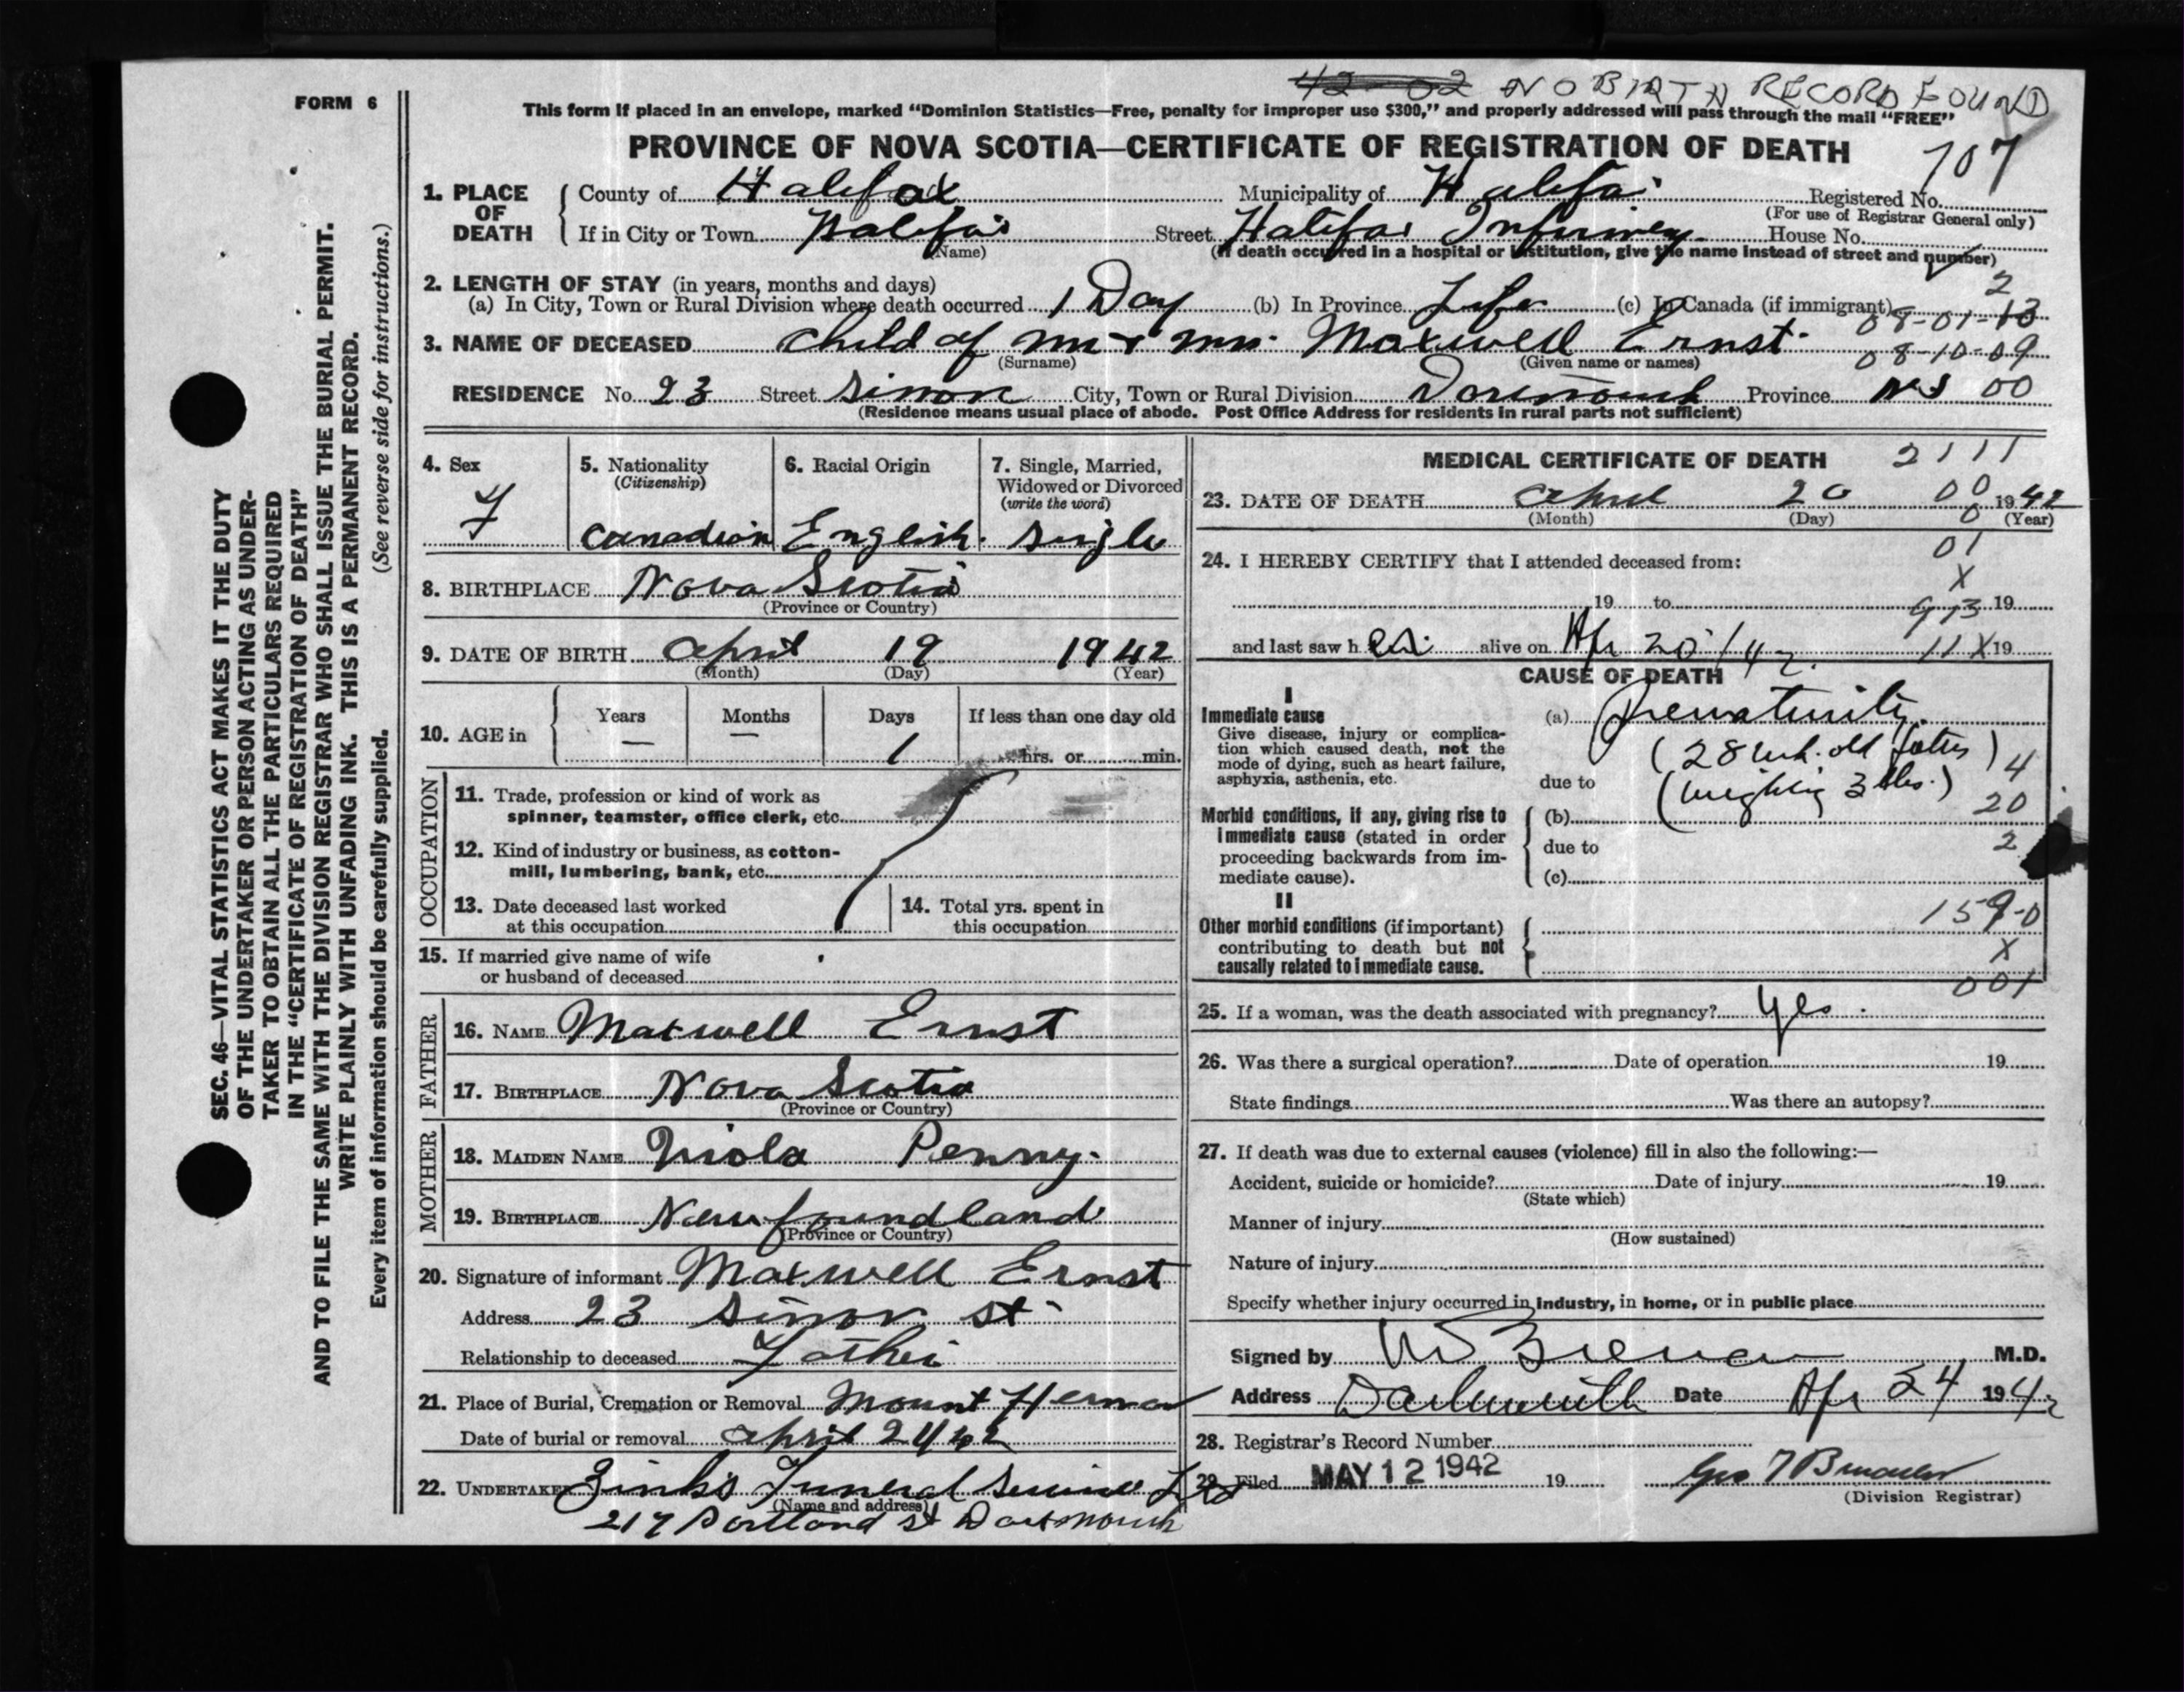 42-02 NO BIRTH RECORD FOUND
FORM 6
This form if placed in an envelope, marked “Dominion Statistics—Free, penalty for improper use $300,” and properly addressed will pass through the mail “FREE”
PROVINCE OF NOVA SCOTIA—CERTIFICATE OF REGISTRATION OF DEATH
707
1. PLACE OF DEATH
County of Halifax Municipality of Halifax Registered No.
(For use of Registrar General only)
If in City or Town Halifax Street Halifax Infirmary House No.
(Name) (If death occurred in a hospital or institution, give the name instead of street and number)
2. LENGTH OF STAY (in years, months and days)
2
(a) In City, Town or Rural Division where death occurred 1 Day (b) In Province Life (c) In Canada (if immigrant)
08-01-13
3. NAME OF DECEASED Child of Mr & Mrs. Maxwell Ernst.
08-10-09
(Surname) (Given name or names)
RESIDENCE No. 23 Street City, Town or Rural Division Dartmouth Province NS 00
(Residence means usual place of abode. Post Office Address for residents in rural parts not sufficient)
4. Sex
F
5. Nationality
(Citizenship)
Canadian
6. Racial Origin
English.
7. Single, Married,
Widowed or Divorced
(write the word)
Single
8. BIRTHPLACE Nova Scotia
(Province or Country)
9. DATE OF BIRTH April 19 1942
(Month) (Day) (Year)
10. AGE in
Years Months Days If less than one day old
— — 1 hrs. or min.
OCCUPATION
11. Trade, profession or kind of work as
spinner, teamster, office clerk, etc.
12. Kind of industry or business, as cotton-
mill, lumbering, bank, etc.
13. Date deceased last worked
at this occupation
14. Total yrs. spent in
this occupation
15. If married give name of wife
or husband of deceased
FATHER
16. NAME Maxwell Ernst
17. BIRTHPLACE Nova Scotia
(Province or Country)
MOTHER
18. MAIDEN NAME Viola Penny.
19. BIRTHPLACE Newfoundland
(Province or Country)
20. Signature of informant Maxwell Ernst
Address 23 St
Relationship to deceased Father
21. Place of Burial, Cremation or Removal Mount Hermon
Date of burial or removal April 24 42
22. UNDERTAKER Zink's Funeral Service Ltd
(Name and address)
217 Portland St Dartmouth
MEDICAL CERTIFICATE OF DEATH
2111
23. DATE OF DEATH April 20 00 1942
(Month) (Day) 0 (Year)
01
24. I HEREBY CERTIFY that I attended deceased from:
X
19 to 913 19
and last saw her alive on Apr 20/42. 11X 19
CAUSE OF DEATH
I
Immediate cause
Give disease, injury or complica-
tion which caused death, not the
mode of dying, such as heart failure,
asphyxia, asthenia, etc.
(a) Prematurity.
(28 wk. old fetus)
4
due to
(weighing 3 lbs.)
20
Morbid conditions, if any, giving rise to
immediate cause (stated in order
proceeding backwards from im-
mediate cause).
(b)
due to
2
(c)
II
Other morbid conditions (if important)
contributing to death but not
causally related to immediate cause.
159-0
X
001
25. If a woman, was the death associated with pregnancy? Yes.
26. Was there a surgical operation? Date of operation 19
State findings Was there an autopsy?
27. If death was due to external causes (violence) fill in also the following:—
Accident, suicide or homicide? Date of injury 19
(State which)
Manner of injury
(How sustained)
Nature of injury
Specify whether injury occurred in industry, in home, or in public place
Signed by M.D.
Address Dartmouth Date Apr 24 1942
28. Registrar's Record Number
29. Filed MAY 12 1942 19
(Division Registrar)
SEC. 46—VITAL STATISTICS ACT MAKES IT THE DUTY
OF THE UNDERTAKER OR PERSON ACTING AS UNDER-
TAKER TO OBTAIN ALL THE PARTICULARS REQUIRED
IN THE “CERTIFICATE OF REGISTRATION OF DEATH”
AND TO FILE THE SAME WITH THE DIVISION REGISTRAR WHO SHALL ISSUE THE BURIAL PERMIT.
WRITE PLAINLY WITH UNFADING INK. THIS IS A PERMANENT RECORD.
Every item of information should be carefully supplied. (See reverse side for instructions.)